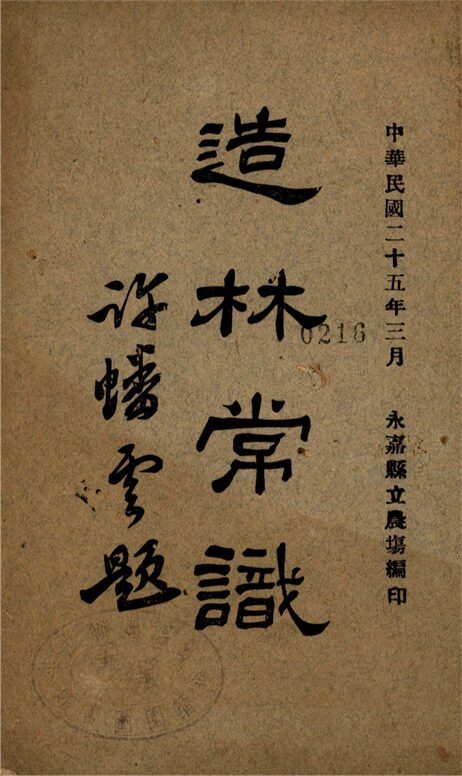 中華民國二十五年三月 永嘉縣立農塲編印
造林常識
許蟠雲題
0216